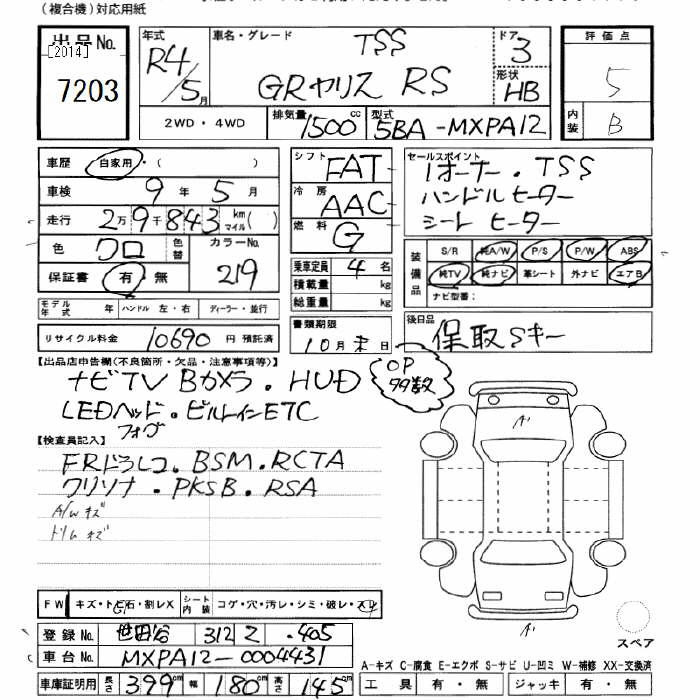 (複合機)対応用紙
出品No. 年式 車名・グレード TSS ドア 3 評価点
[2014] 7203 R4/5月 GRヤリス RS 形状 HB 5
2WD・4WD 排気量 1500cc 型式 5BA-MXPA12 内装 B
車歴 自家用・( ) シフト FAT セールスポイント
1オーナー・TSS
車検 9年5月 冷房 AAC ハンドルヒーター
走行 2万9千843km マイル( ) 燃料 G シートヒーター
色 クロ 色替 カラーNo. 219 乗車定員 4名 装備品 S/R 純A/W P/S P/W ABS
保証書 有・無 積載量 kg 純TV 純ナビ 革シート 外ナビ エアB
総重量 kg ナビ型番:
モデル年式 年 ハンドル 左・右 ディーラー・並行
リサイクル料金 10690円 預託済 書類期限 10月末日 後日品 保取Sキー
【出品店申告欄(不良箇所・欠品・注意事項等)】
ナビTV Bカメラ・HUD OP99数
LEDヘッド・ビルトインETC
フォグ
【検査員記入】
FRドラレコ・BSM・RCTA
クリソナ・PKSB・RSA
A/Wキズ
ドリムキズ
A'
FW キズ・トビ石・割レX シート内装 コゲ・穴・汚レ・シミ・破レ・スレ
G1
登録No. 世田谷 312 Z ・405
車台No. MXPA12-0004431
A' スペア
A-キズ C-腐食 E-エクボ S-サビ U-凹ミ W-補修 XX-交換済
車庫証明用 長さ 399cm 幅 180cm 高さ 145cm 工具 有・無 ジャッキ 有・無